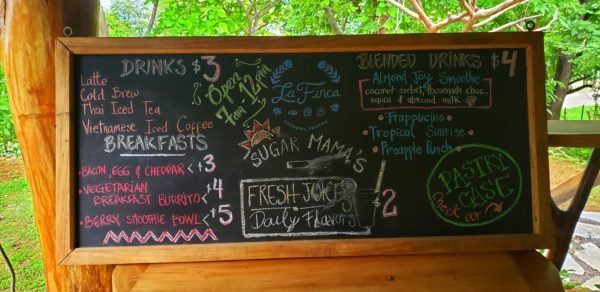 DRINKS $3
Latte
Cold Brew
Thai Iced Tea
Vietnamese Iced Coffee
BREAKFASTS
• BACON, EGG & CHEDDAR < $3
• VEGETARIAN
BREAKFAST BURRITO < $4
• BERRY SMOOTHIE BOWL < $5
Open
7am - 12pm
La Finca
SUGAR MAMA'S
FRESH JUICES
Daily Flavors
$2
BLENDED DRINKS $4
Almond Joy Smoothie
coconut sorbet, housemade choc.
sauce & almond milk
• Frappucino •
• Tropical Sunrise •
• Pineapple Punch •
PASTRY
CASE
Check our